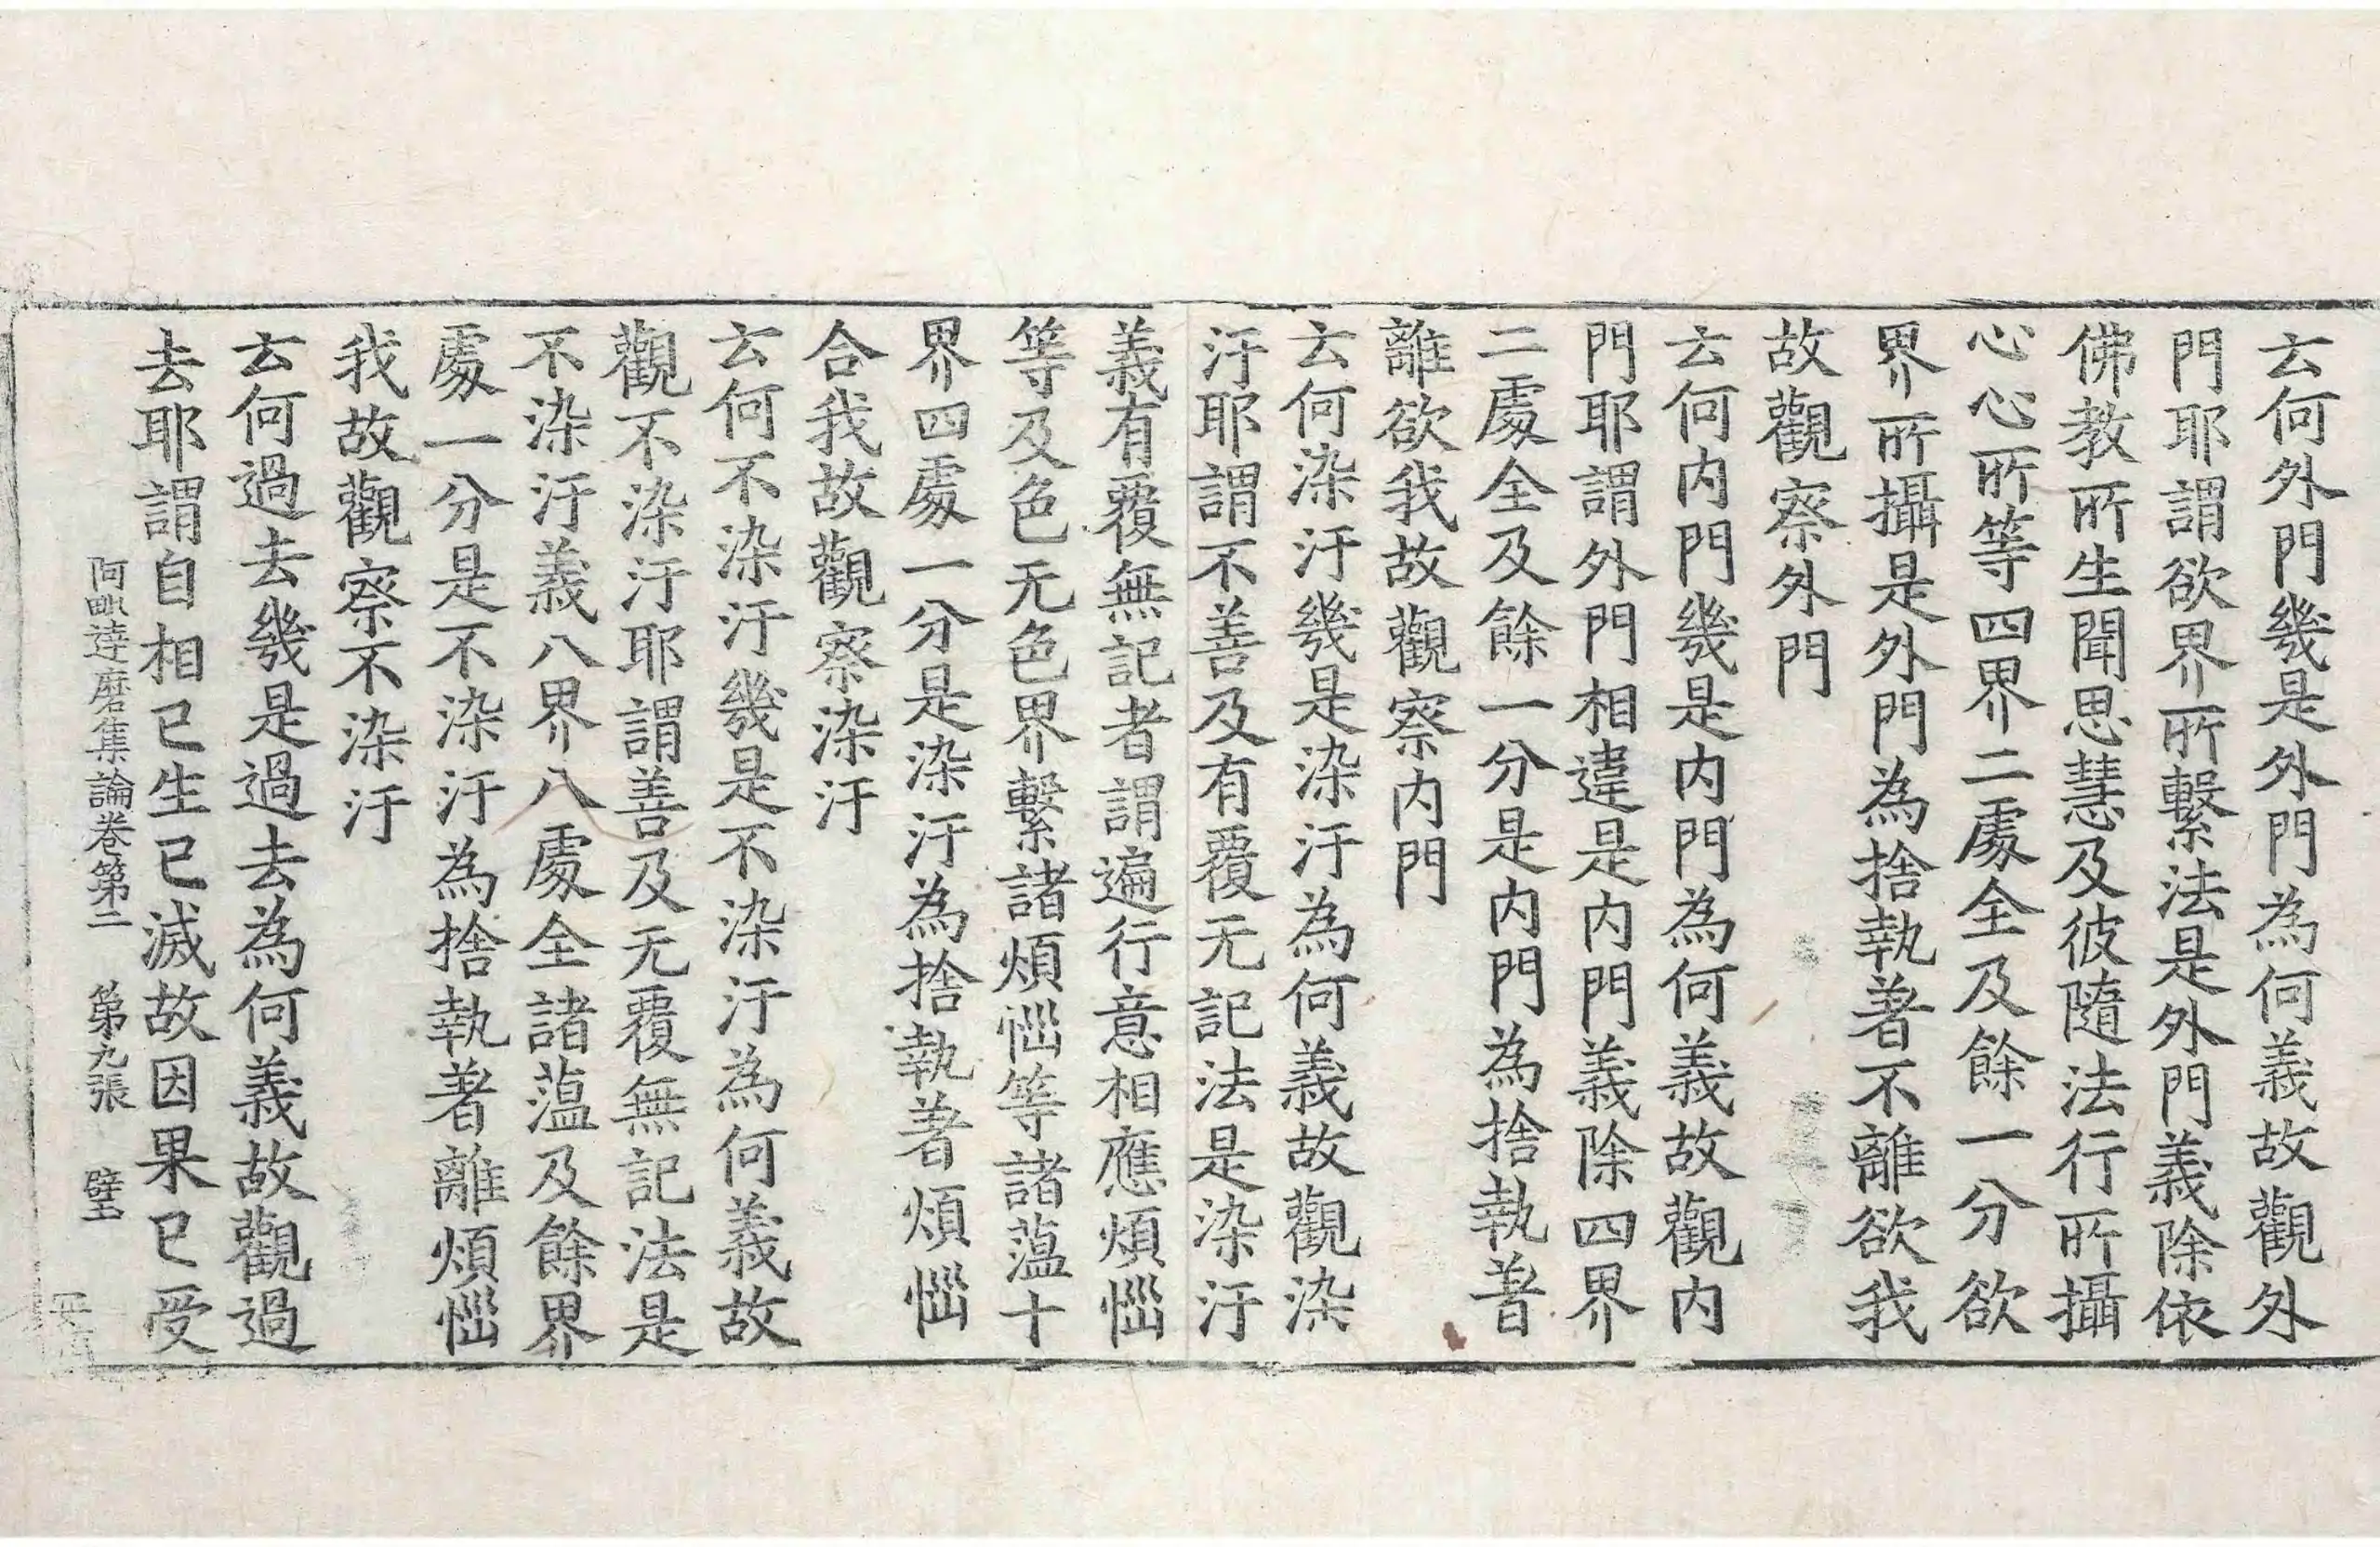 云何外門幾是外門為何義故觀外
門耶謂欲界所繫法是外門義除依
佛教所生聞思慧及彼隨法行所攝
心心所等四界二處全及餘一分欲
界所攝是外門為捨執著不離欲我
故觀察外門
云何内門幾是内門為何義故觀内
門耶謂外門相違是内門義除四界
二處全及餘一分是内門為捨執著
離欲我故觀察内門
云何染汙幾是染汙為何義故觀染
汙耶謂不善及有覆无記法是染汙
義有覆無記者謂遍行意相應煩惱
等及色无色界繫諸煩惱等諸蕰十
界四處一分是染汙為捨執著煩惱
合我故觀察染汙
云何不染汙幾是不染汙為何義故
觀不染汙耶謂善及无覆無記法是
不染汙義八界八處全諸蕰及餘界
處一分是不染汙為捨執著離煩惱
我故觀察不染汙
云何過去幾是過去為何義故觀過
去耶謂自相已生已滅故因果已受
阿毗達磨集論卷第二 第九張 壁